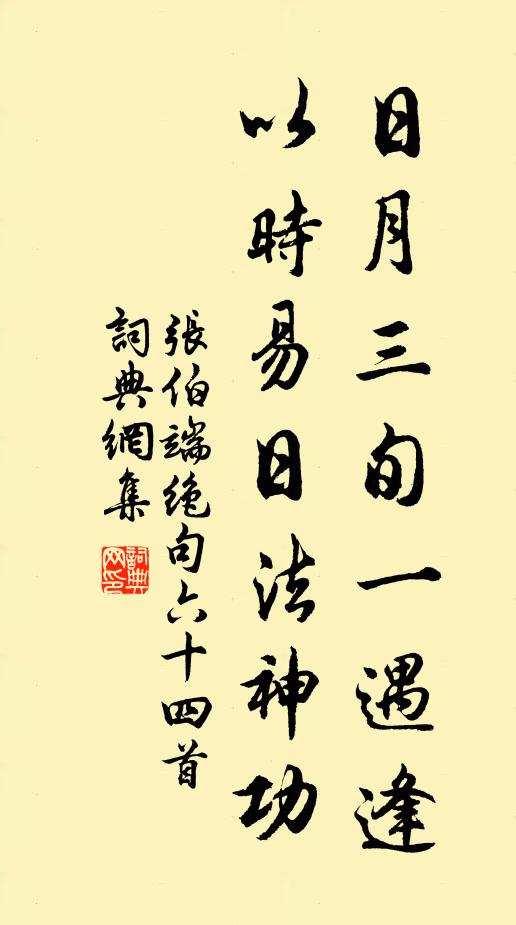 日月三旬一遇逢
以時易日法神功
張伯端絶句六十四首
詞典網集
詞典
网印